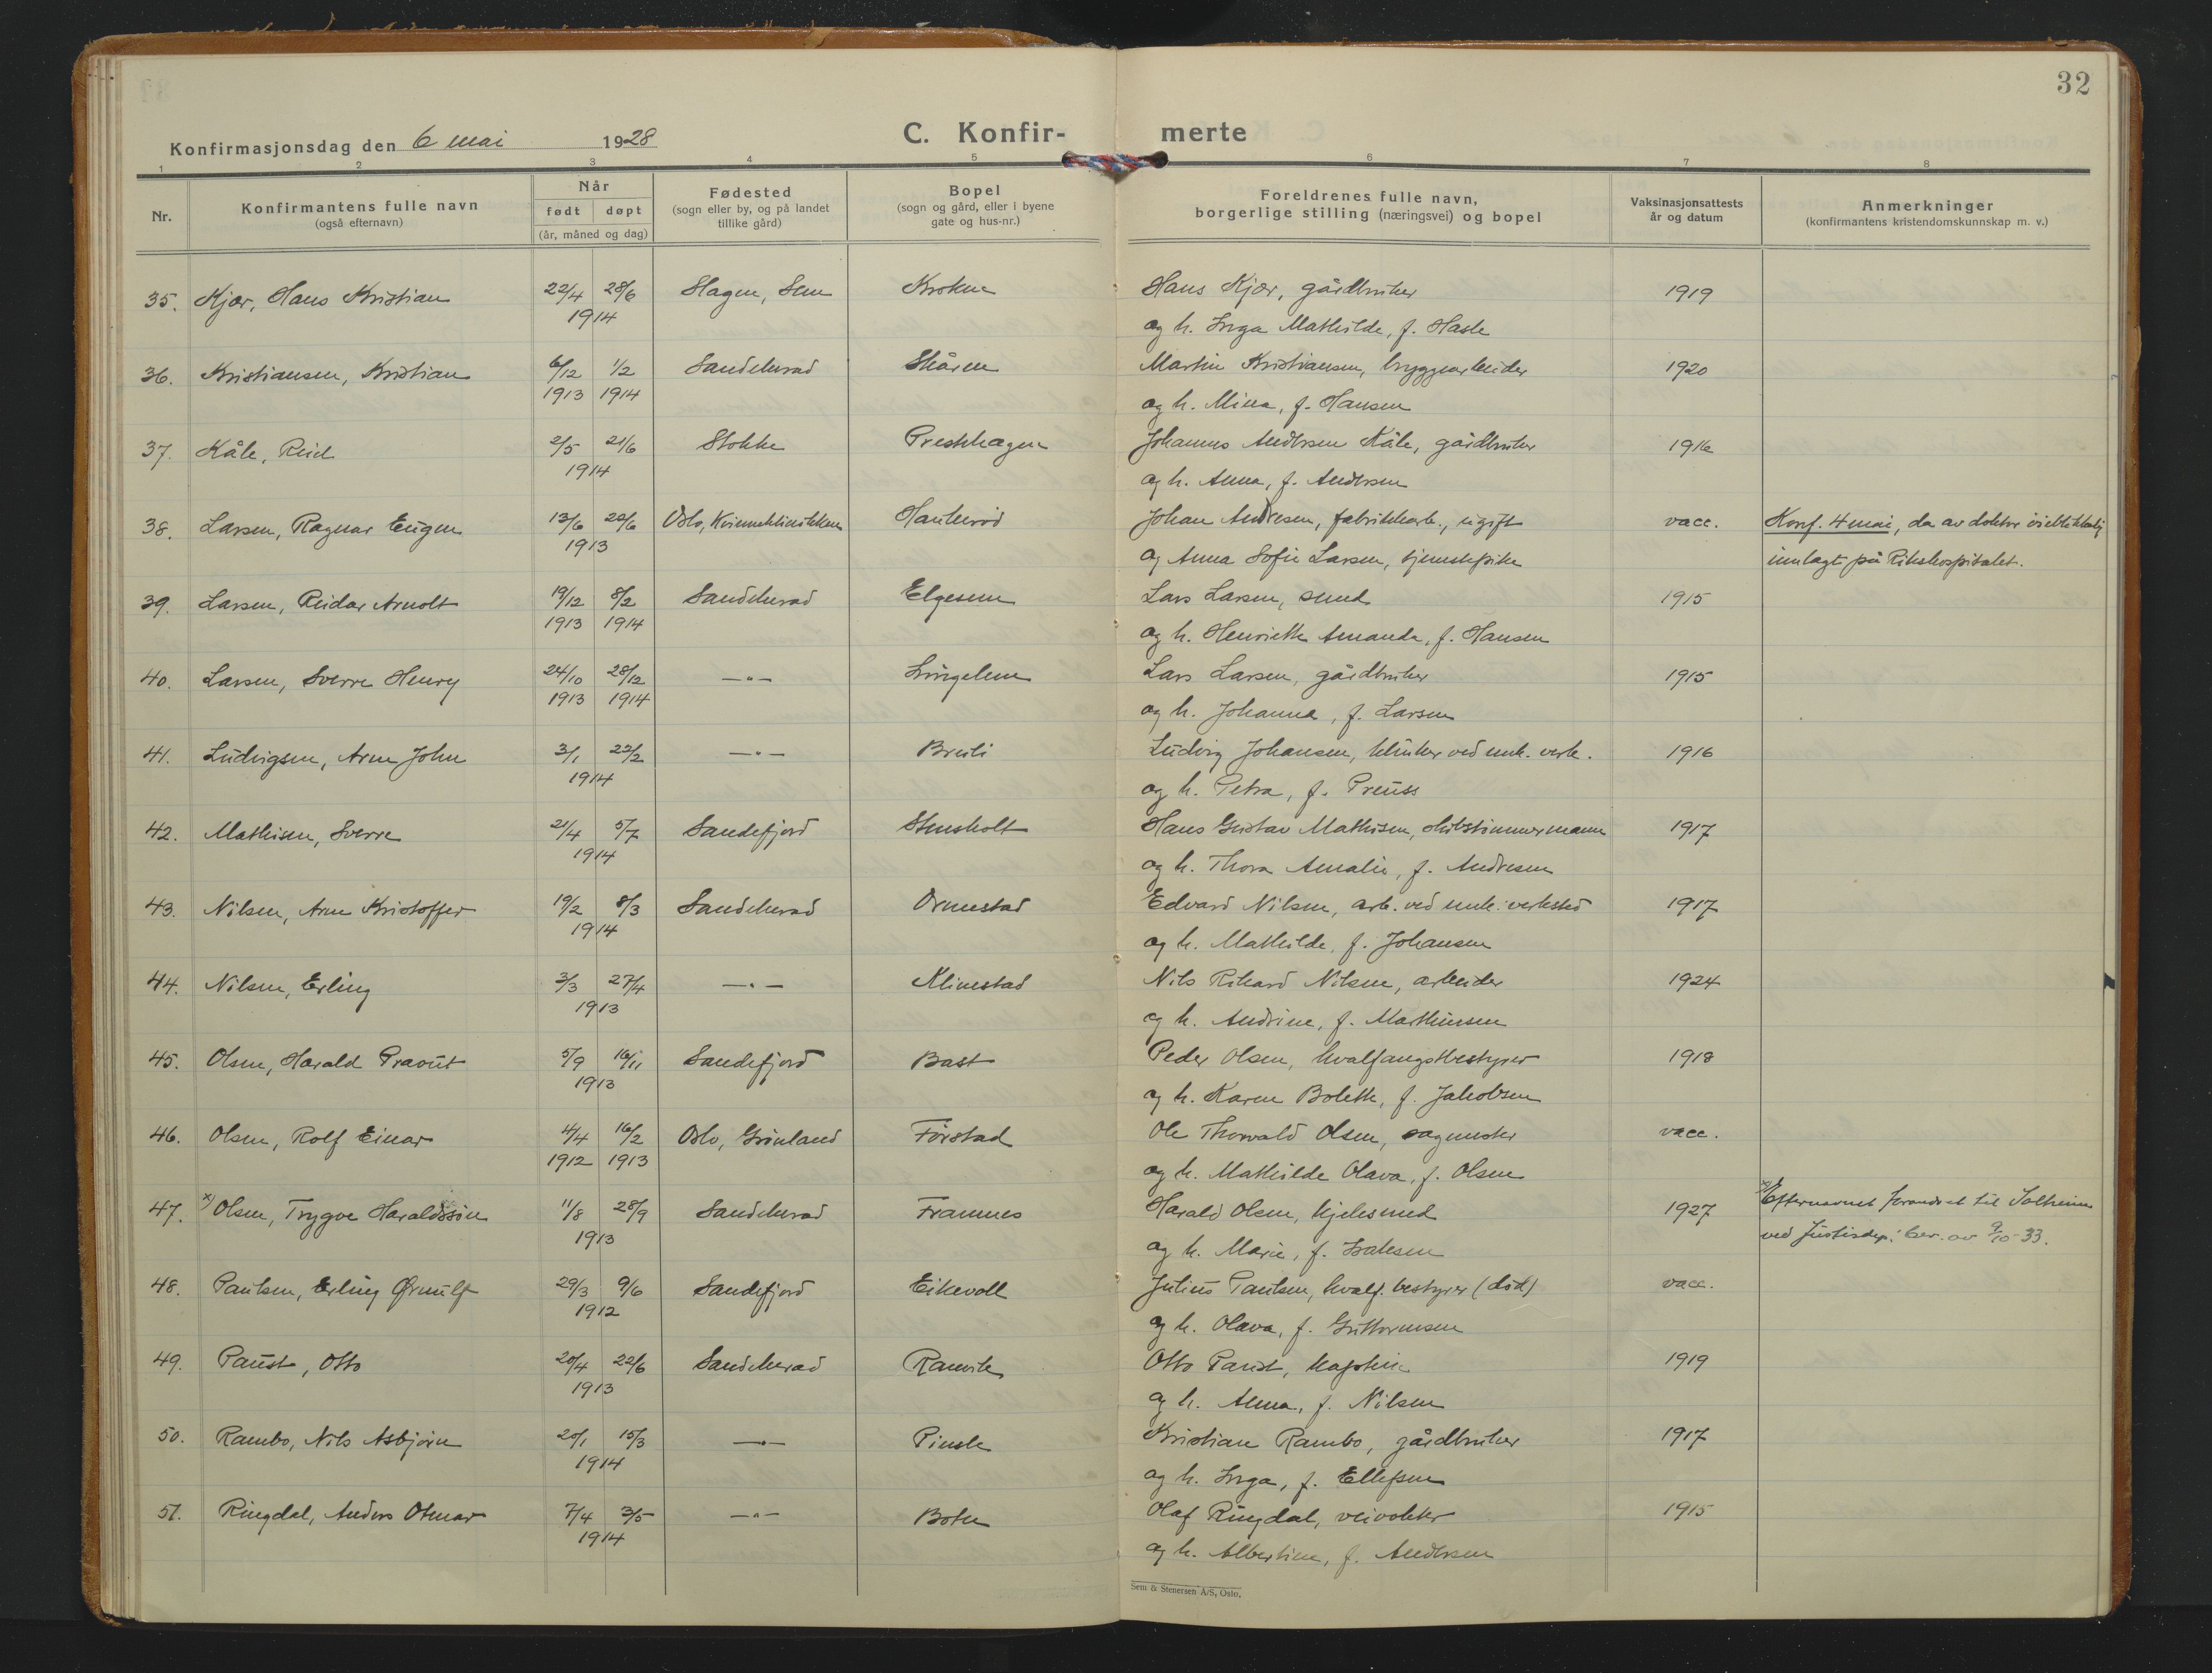 32
Konfirmasjonsdag den 6 mai 1928
C. Konfir- merte
1 2 3 4 5 6 7 8
Nr.
Konfirmantens fulle navn
(også efternavn)
Når
født døpt
(år, måned og dag)
Fødested
(sogn eller by, og på landet
tillike gård)
Bopel
(sogn og gård, eller i byene
gate og hus-nr.)
Foreldrenes fulle navn,
borgerlige stilling (næringsvei) og bopel
Vaksinasjonsattests
år og datum
Anmerkninger
(konfirmantens kristendomskunnskap m. v.)
35. Kjær, Hans Kristian 22/4 28/6 Slagen, Sem Kroken Hans Kjær, gårdbruker 1919
1914 og h. Inga Mathilde, f. Hasle
36. Kristiansen, Kristian 6/12 1/2 Sandeherad Skåren Martin Kristiansen, bryggearbeider 1920
1913 1914 og h. Mina, f. Hansen
37. Kåle, Reid 2/5 21/6 Stokke Presthagen Johannes Andersen Kåle, gårdbruker 1916
1914 og h. Anna, f. Andersen
38. Larsen, Ragnar Eugen 13/6 20/6 Oslo, Kvinneklinikken Haukerød Johan Andresen, fabrikkarb., ugift vacc. Konf. 4 mai, da av doktor øieblikkelig
1913 og Anna Sofie Larsen, tjenestepike innlagt på Rikshospitalet.
39. Larsen, Reidar Arnolt 19/12 8/2 Sandeherad Elgesem Lars Larsen, smed 1915
1913 1914 og h. Henriette Amanda, f. Hansen
40. Larsen, Sverre Henry 24/10 28/12 —"— Lingelem Lars Larsen, gårdbruker 1915
1913 1914 og h. Johanna, f. Larsen
41. Ludvigsen, Arne John 3/1 22/2 —"— Breili Ludvig Johansen, klinker ved mek. verk. 1916
1914 og h. Petra, f. Preuss
42. Mathisen, Sverre 21/4 5/7 Sandefjord Stensholt Hans Gustav Mathisen, skibstimmermann 1917
1914 og h. Thora Amalie, f. Andresen
43. Nilsen, Arne Kristoffer 19/2 8/3 Sandeherad Ormestad Edvard Nilsen, arb. ved mek. verksted 1917
1914 og h. Mathilde, f. Johansen
44. Nilsen, Erling 3/3 27/4 —"— Klinestad Nils Rikard Nilsen, arbeider 1924
1913 og h. Andrine, f. Marthinsen
45. Olsen, Harald Pravut 5/9 16/11 Sandefjord Bast Peder Olsen, hvalfangstbestyrer 1918
1913 og h. Karen Bolette, f. Jakobsen
46. Olsen, Rolf Einar 4/4 16/2 Oslo, Grønland Førstad Ole Thorvald Olsen, sagmester vacc.
1912 1913 og h. Mathilde Olava, f. Olsen
47. x) Olsen, Trygve Haraldssøn 11/8 28/9 Sandeherad Framnes Harald Olsen, kjelesmed 1927 x) Efternavnet forandret til Solheim
1913 og h. Marie, f. Isaksen ved Justisdep.: bev. av 9/10-33.
48. Paulsen, Erling Ørnulf 29/3 9/6 Sandefjord Eikevoll Julius Paulsen, hvalf. bestyrer (død) vacc.
1912 og h. Olava, f. Guttormsen
49. Paust, Otto 20/4 22/6 Sandeherad Ranvik Otto Paust, kaptein 1919
1913 og h. Anna, f. Nilsen
50. Rambo, Nils Asbjørn 20/1 15/3 —"— Pinsle Kristian Rambo, gårdbruker 1917
1914 og h. Inga, f. Ellefsen
51. Ringdal, Anders Otmar 7/4 3/5 —"— Boten Olaf Ringdal, veivokter 1915
1914 og h. Albertine, f. Andersen
Sem & Stenersen A/S, Oslo.